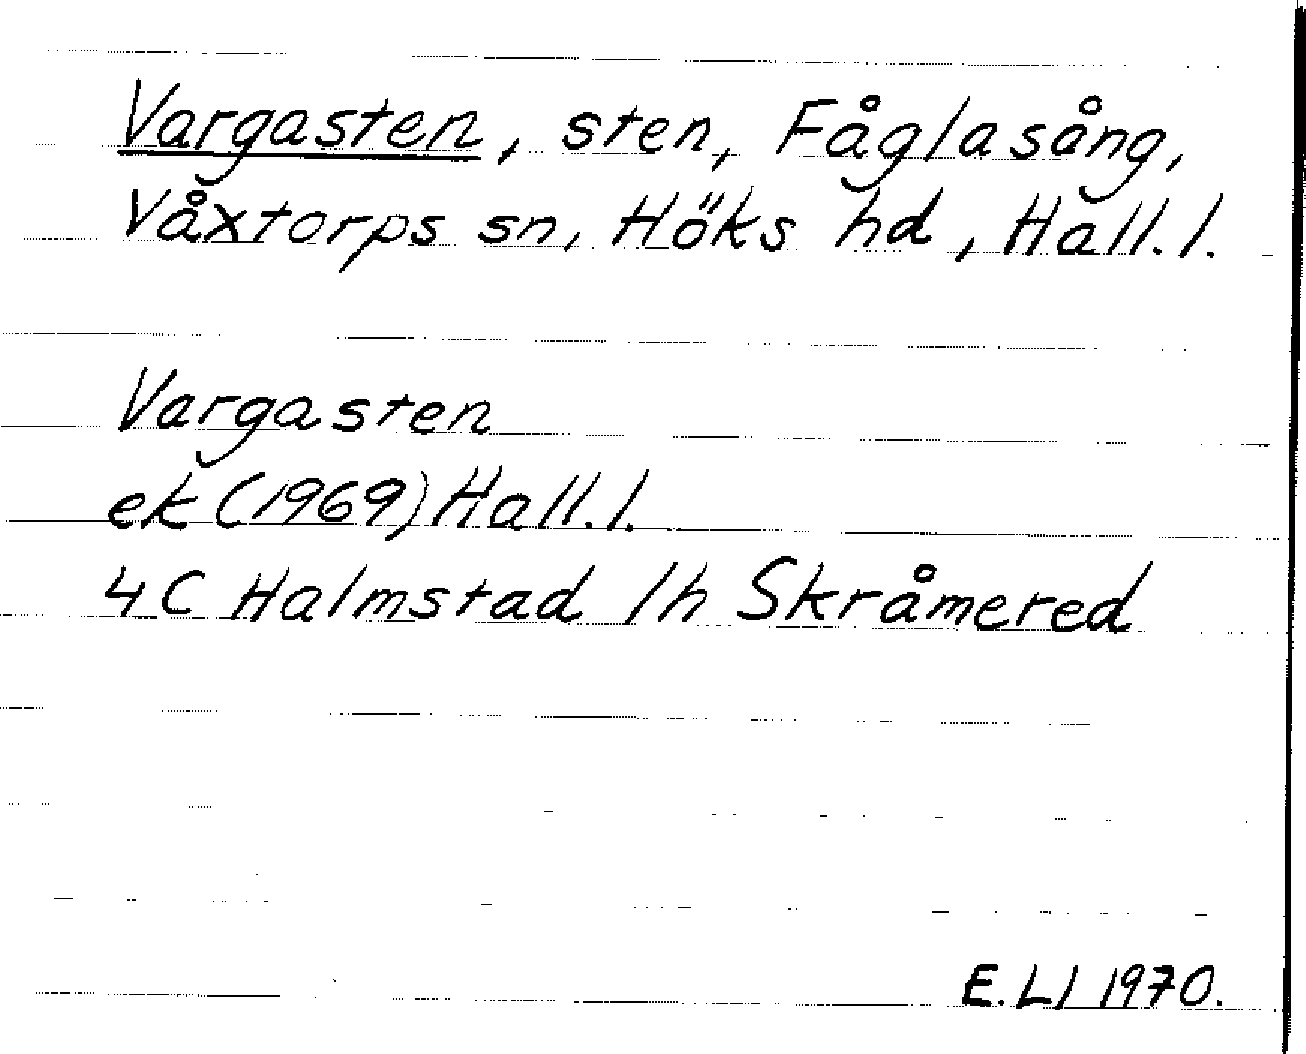 Vargasten, sten, Fåglasång,
Våxtorps sn, Höks hd, Hall. l.
Vargasten
ek (1969) Hall. l.
4 C Halmstad lh Skråmered
E. Ll 1970.